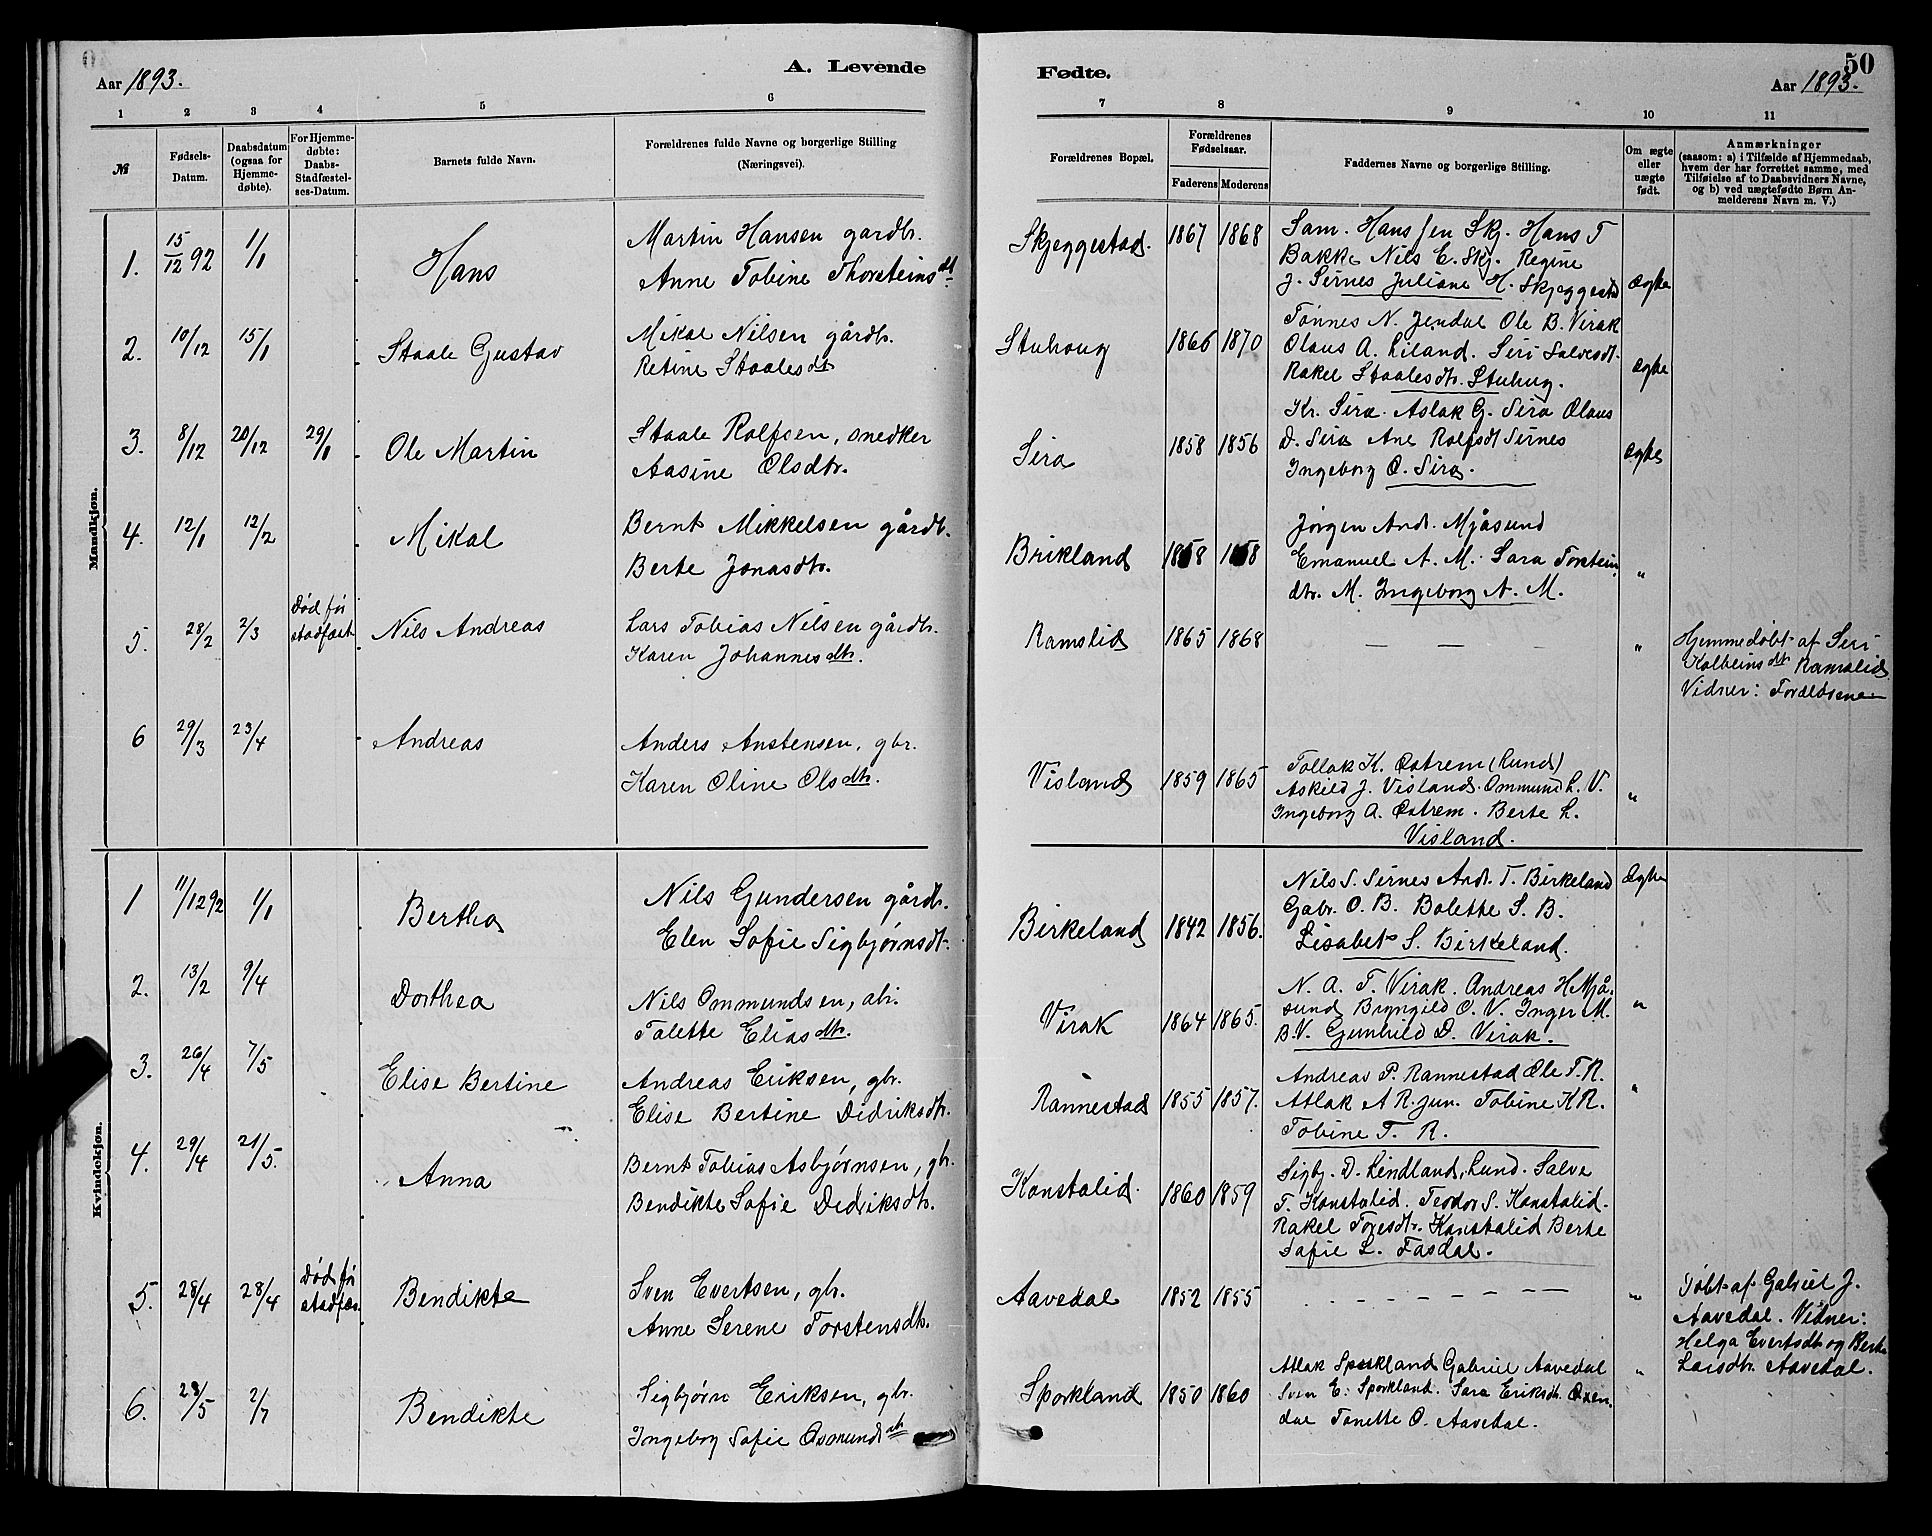 Aar 1893.
A. Levende
Fødte.
50
Aar 1893.
1 2 3 4 5 6 7 8 9 10 11
№
Fødsels-
Datum.
Daabsdatum
(ogsaa for
Hjemme-
døbte).
For Hjemme-
døbte:
Daabs-
Stadfæstel-
ses-Datum.
Barnets fulde Navn.
Forældrenes fulde Navne og borgerlige Stilling
(Næringsvei).
Forældrenes Bopæl.
Forældrenes
Fødselsaar.
Faderens Moderens
Faddernes Navne og borgerlige Stilling.
Om ægte
eller
uægte
født.
Anmærkninger
(saasom: a) i Tilfælde af Hjemmedaab,
hvem der har forrettet samme, med
Tilføielse af to Daabsvidners Navne,
og b) ved uægtefødte Børn An-
melderens Navn m. V.)
Mandkjøn.
1. 15/12 92 1/1 Hans
Martin Hansen gardbr.
Anne Tobine Thorsteinsdt.
Skjeggestad. 1867 1868
Sam. Hans Jen Skj. Hans T
Bakke Nils E. Skj. Regine
J. Sirnes Juliane H. Skjeggestad
Ægte
2. 10/12 15/1 Staale Gustav
Mikal Nilsen gårdbr.
Retine Staalesdt
Stuhoug 1866 1870
Tønnes N. Jendal Ole B. Virak
Olaus A. Liland. Seri Salvesdt.
Rakel Staalesdtr. Stuhug.
Ægte
3. 8/12 20/12 29/1 Ole Martin
Staale Rolfsen, snedker
Aasine Olsdtr.
Sira 1858 1856
Kr. Sira. Aslak G. Sira Olaus
D. Sira Ane Rolfsdt Sirnes
Ingeborg O. Sira.
Ægte
4. 12/1 12/2 Mikal
Bernt Mikkelsen gårdb.
Berte Jonasdtr.
Brikland 1858 1858
Jørgen Andr. Mjåsund
Emanuel A. M. Sara Torstein
dtr. M. Ingeborg A. M.
"
5. 28/2 2/3 Død før
stadfæst. Nils Andreas
Lars Tobias Nilsen gårdbr.
Karen Johannesdtr.
Ramslid 1865 1868 — — — "
Hjemmedøbt af Seri
Kolbeinsdtr Ramslid
Vidner: Forældrene
6 29/3 23/4 Andreas
Anders Anstensen, gbr.
Karen Oline Olsdtr.
Visland 1859 1865
Tollak K. Østrem (Lund)
Askild J. Visland. Ommund L. V.
Ingeborg A. Østrem. Berte L.
Visland.
"
Kvindekjøn.
1 11/12 92 1/1 Bertha
Nils Gundersen gårdb.
Elen Sofie Sigbjørnsdt.
Birkeland 1842 1856.
Nils S. Sirnes Andr. T. Birkeland
Gabr. O. B. Bolette S. B.
Lisabet S. Birkeland.
Ægte
2. 13/2 9/4 Dorthea
Nils Ommundsen, abr.
Talette Eliasdtr.
Virak 1864 1865.
N. A. T. Virak. Andreas H. Mjå-
sund Bryngild O. V. Inger M.
B. V. Gunhild D. Virak.
"
3. 26/4 7/5 Elise Bertine
Andreas Eriksen, gbr.
Elise Bertine Didriksdtr.
Rannestad 1855 1857.
Andreas P. Rannestad Ole T. R.
Atlak A R. jun. Tobine K R.
Tobine T. R.
"
4. 29/4 21/5. Anna
Bernt Tobias Asbjørnsen, gbr.
Bendikte Sofie Didriksdtr.
Konstalid. 1860 1859
Sigbj. D. Lindland, Lund. Salve
T. Konstalid. Teodor S. Konstalid.
Rakel Toresdtr. Konstalid Berte
Sofie L. Fasdal.
5. 28/4 28/4 Død før
stadfæs. Bendikte
Sven Evertsen, gbr.
Anne Serene Torstensdtr.
Aavedal 1852 1855 — — — — — "
Døbt af Gabriel J.
Aavedal. Vidner:
Helga Evertsdtr og Berte
Larsdtr. Aavedal.
6. 23/5 2/7 Bendikte
Sigbjørn Eriksen, gbr.
Ingeborg Sofie Osmundsdtr
Sporkland 1850 1860
Atlak Sporkland Gabriel Aavedal
Sven E. Sporkland. Sara Eriksdtr. Oxen-
dal Tonette O. Aavedal.
"